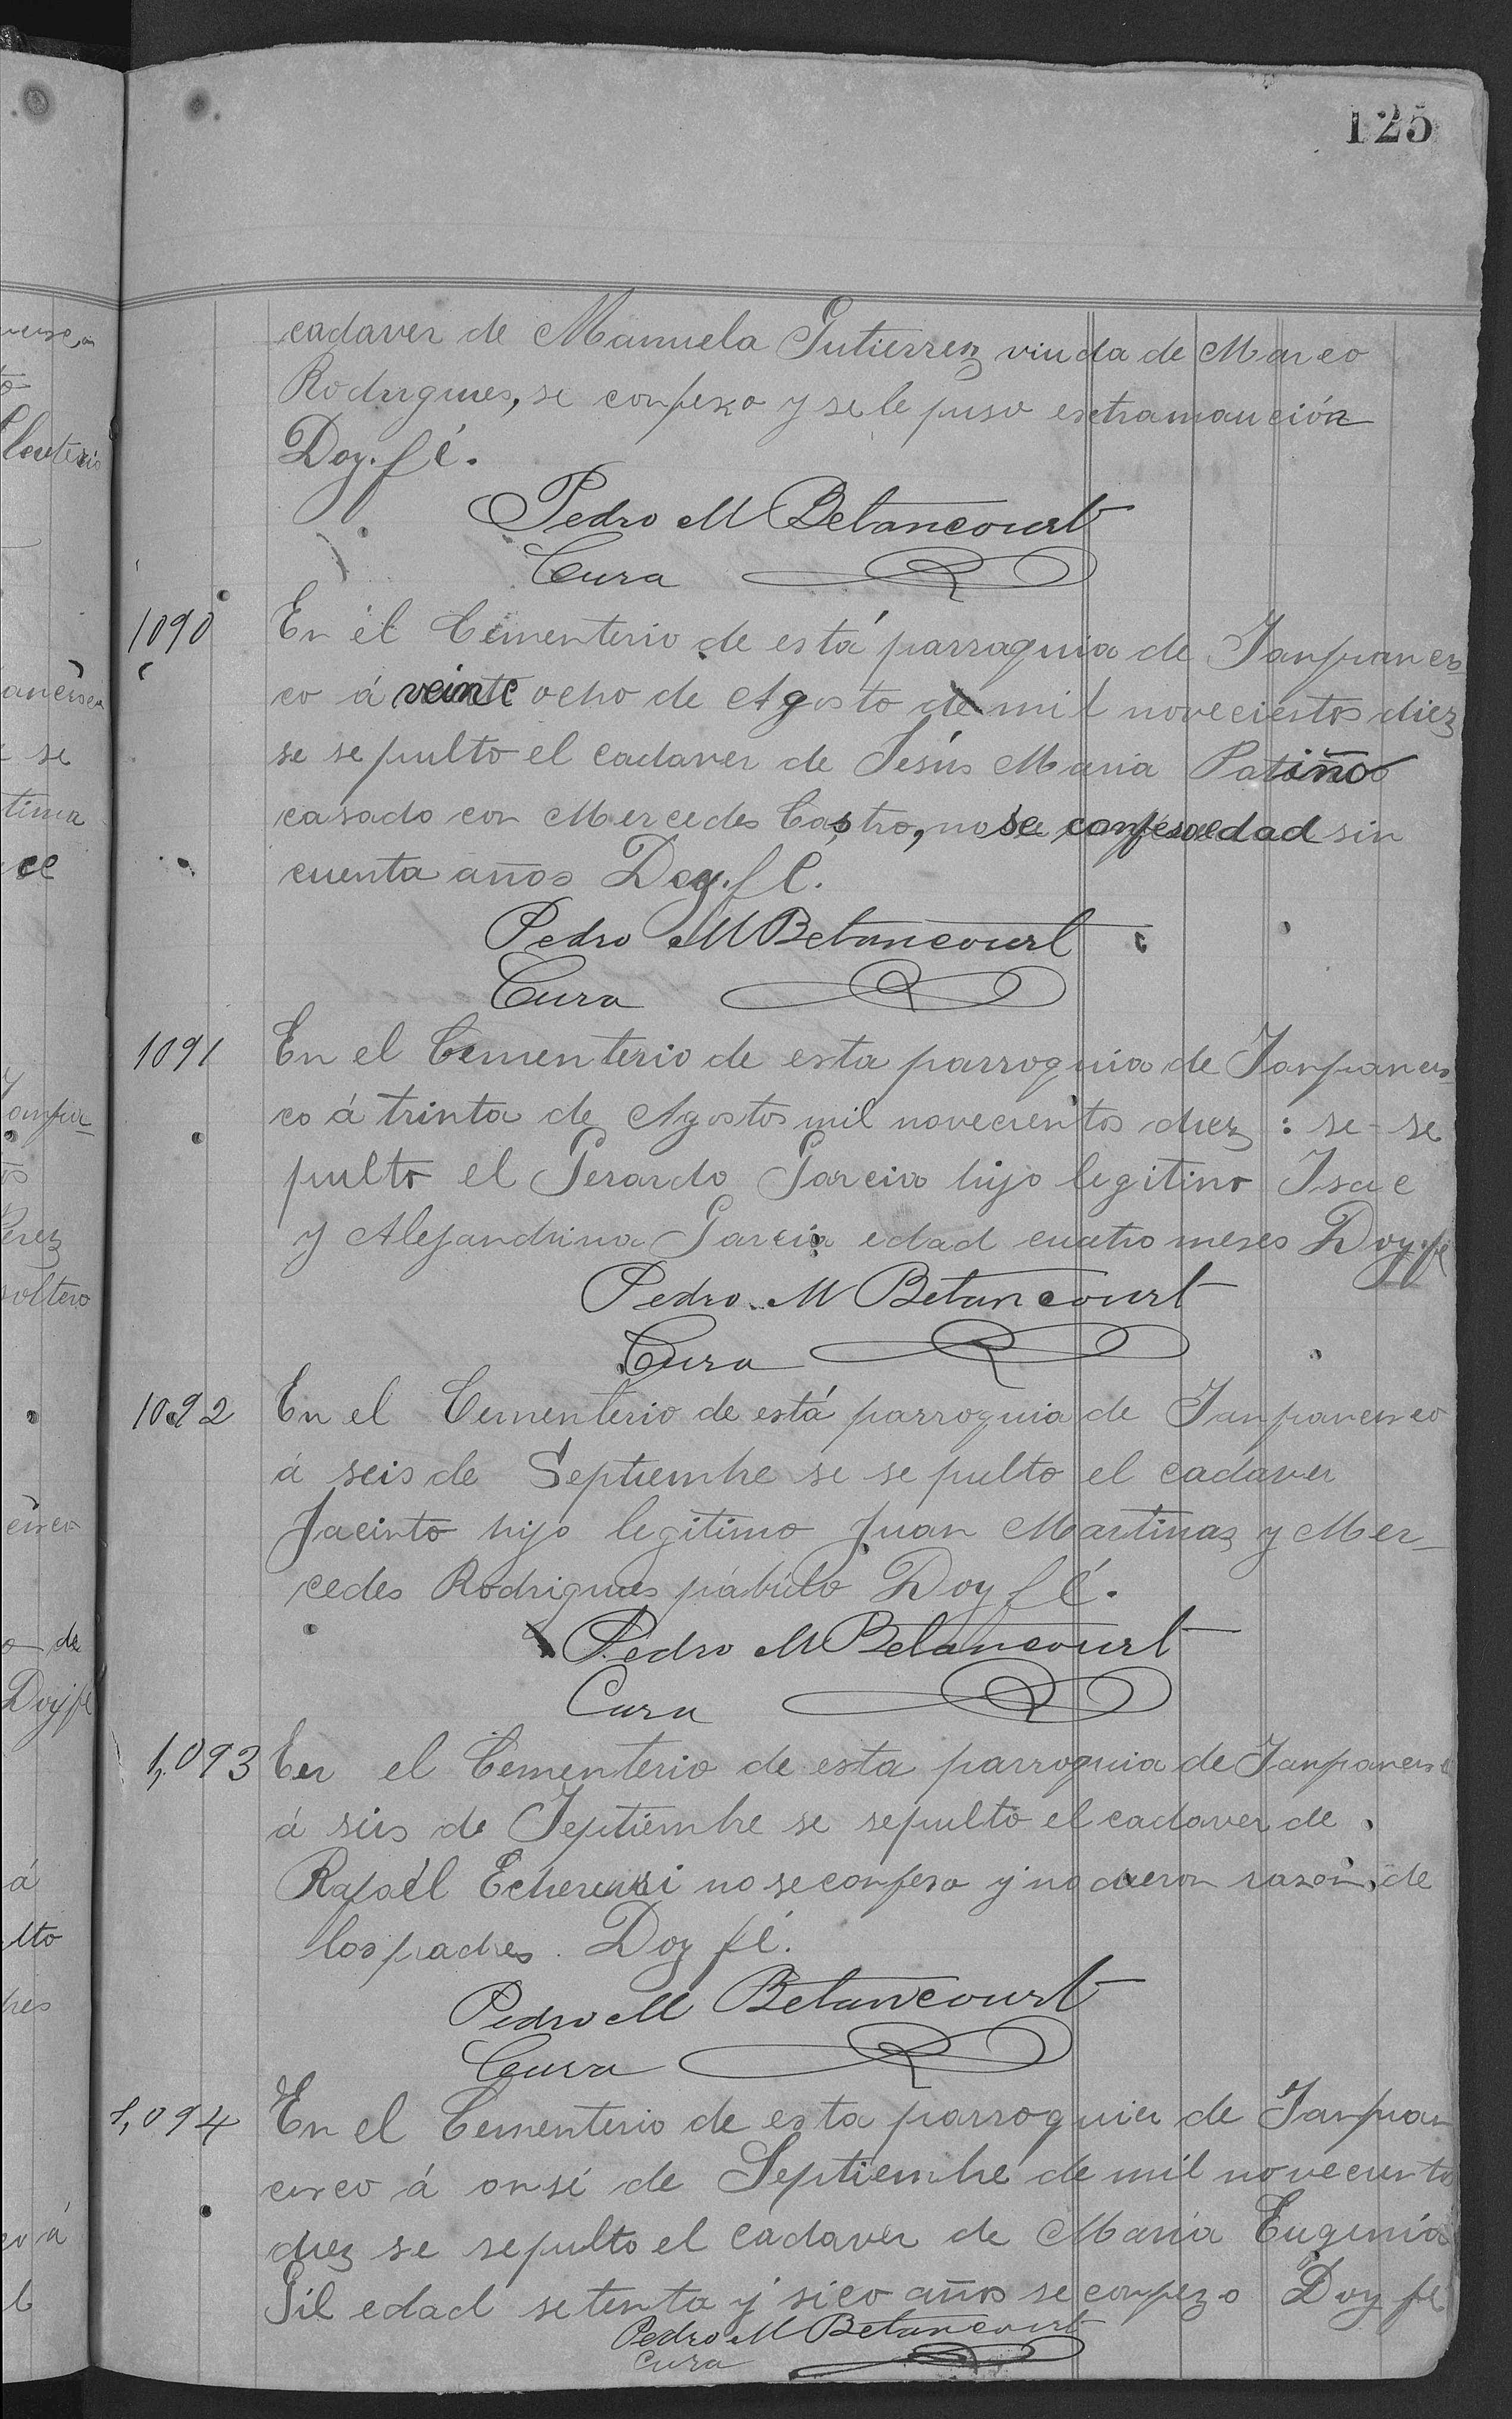 125
cadaver de Manuela Gutierrez viuda de Marco
Rodrigues, se confeso y se le puso extramaución
Doy. fé.
Pedro M Betancourt
Cura
1090 En él Cementerio de está parraquia de Sanfrancis
co á veinte ocho de Agosto de mil novecientos diez
se sepulto el cadaver de Jesús Maria Patiño
casado con Mercedes Castro, no se confeso edad sin
cuenta años Doy. fé.
Pedro M Betancourt
Cura
1091 En el Cementerio de esta parroquia de Sanfrancis
co á trinta de Agostos mil novecientos diez : se se
pulto el Gerardo Garcia hijo legitimo Isac
y Alejandrina Garcia edad cuatro meses Doy. fé
Pedro M Betancourt
Cura
1092 En el Cementerio de está parroquia de Sanfrancisco
á seis de Septiembre se sepulto el cadaver
Jacinto hijo legitimo Juan Martinas y Mer_
cedes Rodrigues párbulo Doy fé.
Pedro M Betancourt
Cura
1,093 En el Cementerio de esta parroquia de Sanfrancisco
á seis de Septiembre se sepulto el cadaver de
Rafaél no se confeso y no dieron rason de
los padres. Doy fé.
Pedro M Betancourt
Cura
1,094 En el Cementerio de esta parroquia de Sanfran
cisco á onsé de Septiembre de mil noveciento
diez se sepulto el cadaver de Maria Eugenia
Gil edad setenta y sico años se confezo Doy fé
Pedro M Betancourt
Cura